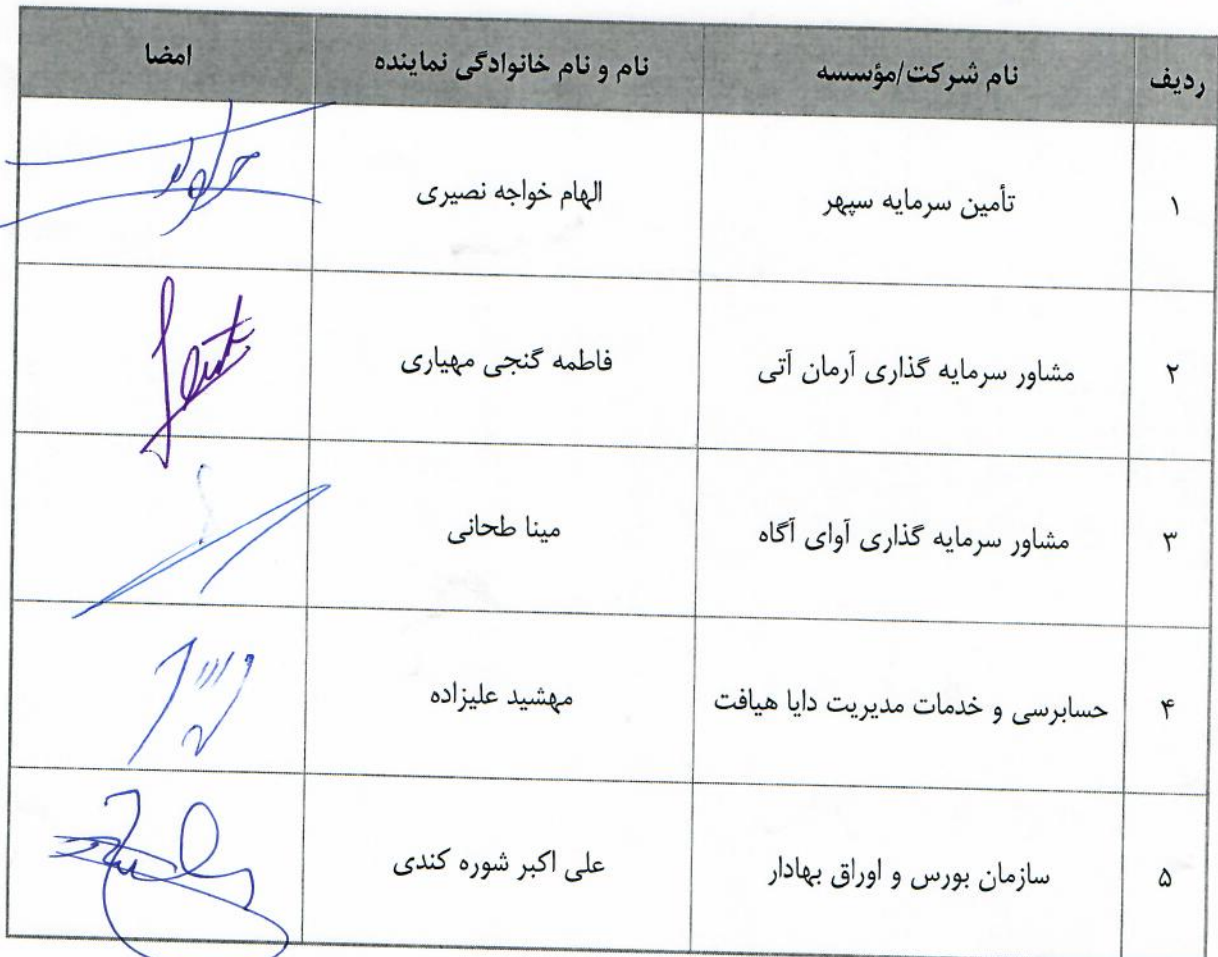 ردیف نام شرکت/مؤسسه نام و نام خانوادگی نماینده امضا
۱ تأمین سرمایه سپهر الهام خواجه نصیری
۲ مشاور سرمایه گذاری آرمان آتی فاطمه گنجی مهیاری
۳ مشاور سرمایه گذاری آوای آگاه مینا طحانی
۴ حسابرسی و خدمات مدیریت دایا هیافت مهشید علیزاده
۵ سازمان بورس و اوراق بهادار علی اکبر شوره کندی